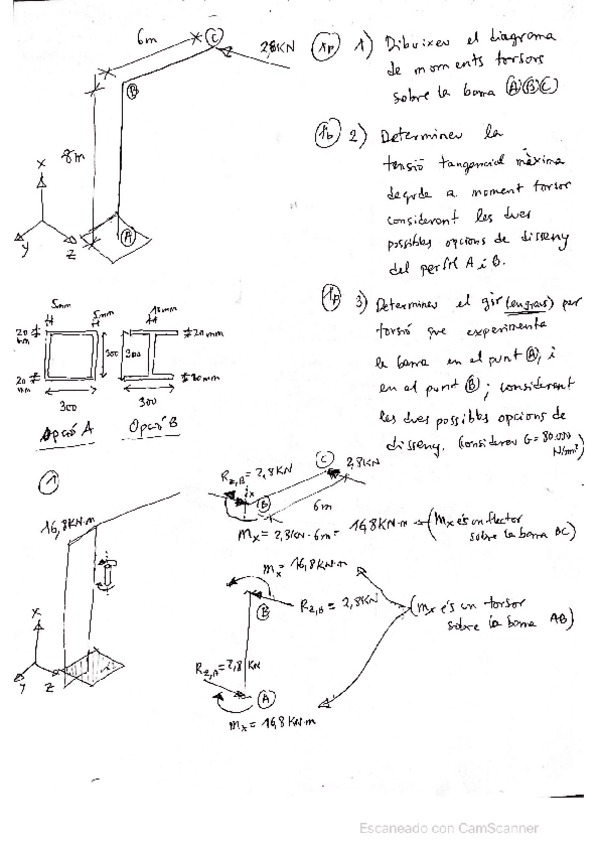 6m
C
2,8KN
B
8m
x
y
z
A
1p 1) Dibuixeu el diagrama
de moments torsors
sobre la barra (A)(B)(C)
1p 2) Determineu la
tensió tangencial màxima
deguda a moment torsor
considerant les dues
possibles opcions de disseny
del perfil A i B.
1p 3) Determineu el gir (en graus) per
torsió que experimenta
la barra en el punt (A), i
en el punt (B); considerant
les dues possibles opcions de
disseny. (considereu G=80.000
N/mm²)
5mm
5mm
20
mm
20
mm
300
300
Opció A
15mm
20mm
300
20mm
300
Opció B
1
16,8KN·m
x
y
z
R2,B = 2,8KN
C
2,8KN
x
B
6m
Mx = 2,8KN·6m = 16,8KN·m (Mx és un flector
sobre la barra BC)
mx = 16,8KN·m
B
R2,B = 2,8KN
(Mx és un torsor
sobre la barra AB)
R2,A = 2,8KN
A
mx = 16,8KN·m
Escaneado con CamScanner